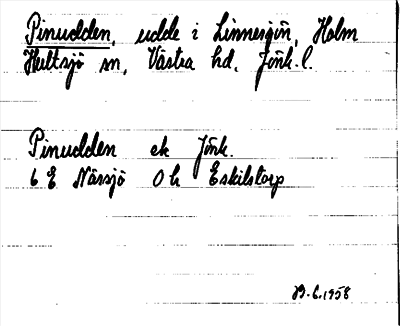 Pinudden, udde i Linnesjön, Holm
Hultsjö sn, Västra hd, Jönk. l.
Pinudden ek Jönk.
6 E Nässjö 0 h Eskilstorp
29.6.1958